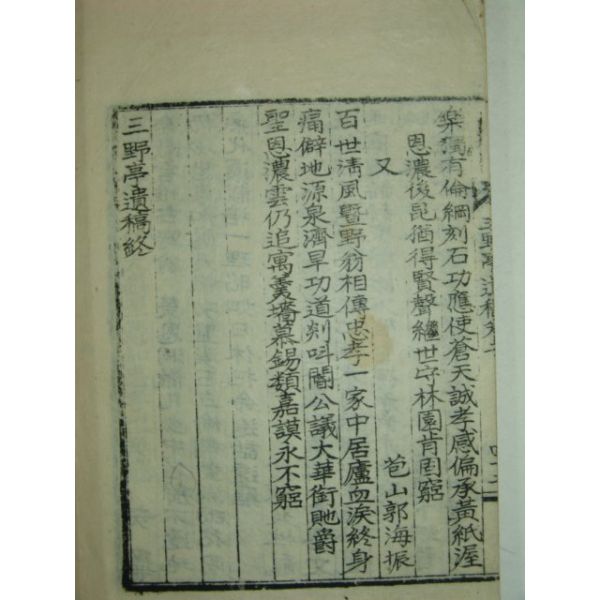 楽獨有倫綱刻石功應使蒼天誠孝感偏承黃紙渥
恩濃後昆猶得賢聲繼世守林園肯困窮
又 苞山郭海振
百世淸風曁野翁相傳忠孝一家中居廬血淚終身
痛僻地源泉濟旱功道剡呌閽公議大華銜貤爵
聖恩濃雲仍追寓羹墻慕錫類嘉謨永不窮
三野亭遺稿終